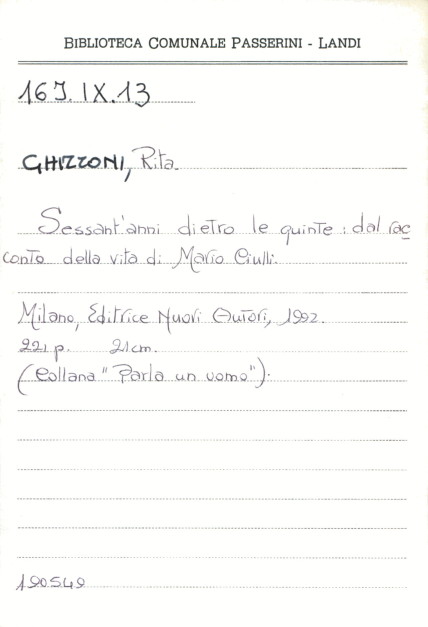 BIBLIOTECA COMUNALE PASSERINI - LANDI
16J.IX.13
GHIZZONI, Rita.
Sessant'anni dietro le quinte : dal rac
conto della vita di Mario Ciulli.
Milano, Editrice Nuovi Autori, 1992.
221 p. 21 cm.
(Collana "Parla un uomo").
190549